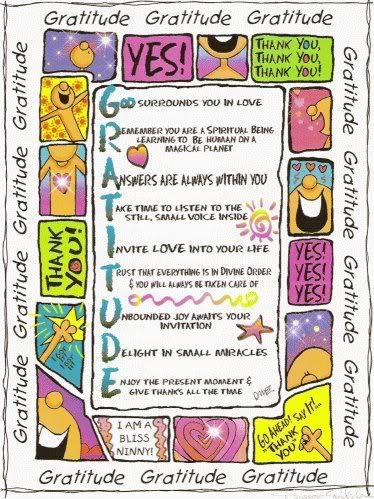 Gratitude Gratitude Gratitude
Gratitude
Gratitude
Gratitude
Gratitude
Gratitude
Gratitude
Gratitude
Gratitude
Gratitude
Gratitude
YES!
THANK YOU,
THANK YOU,
THANK YOU!
GOD SURROUNDS YOU IN LOVE
REMEMBER YOU ARE A SPIRITUAL BEING
LEARNING TO BE HUMAN ON A
MAGICAL PLANET
ANSWERS ARE ALWAYS WITHIN YOU
TAKE TIME TO LISTEN TO THE
STILL, SMALL VOICE INSIDE
INVITE LOVE INTO YOUR LIFE
TRUST THAT EVERYTHING IS IN DIVINE ORDER
& YOU WILL ALWAYS BE TAKEN CARE OF
UNBOUNDED JOY AWAITS YOUR
INVITATION
DELIGHT IN SMALL MIRACLES
ENJOY THE PRESENT MOMENT &
GIVE THANKS ALL THE TIME
THANK
YOU!
YES!
YES!
YES!
I AM A
BLISS
NINNY!
GO AHEAD! SAY IT...
"THANK
YOU"
Gratitude Gratitude Gratitude